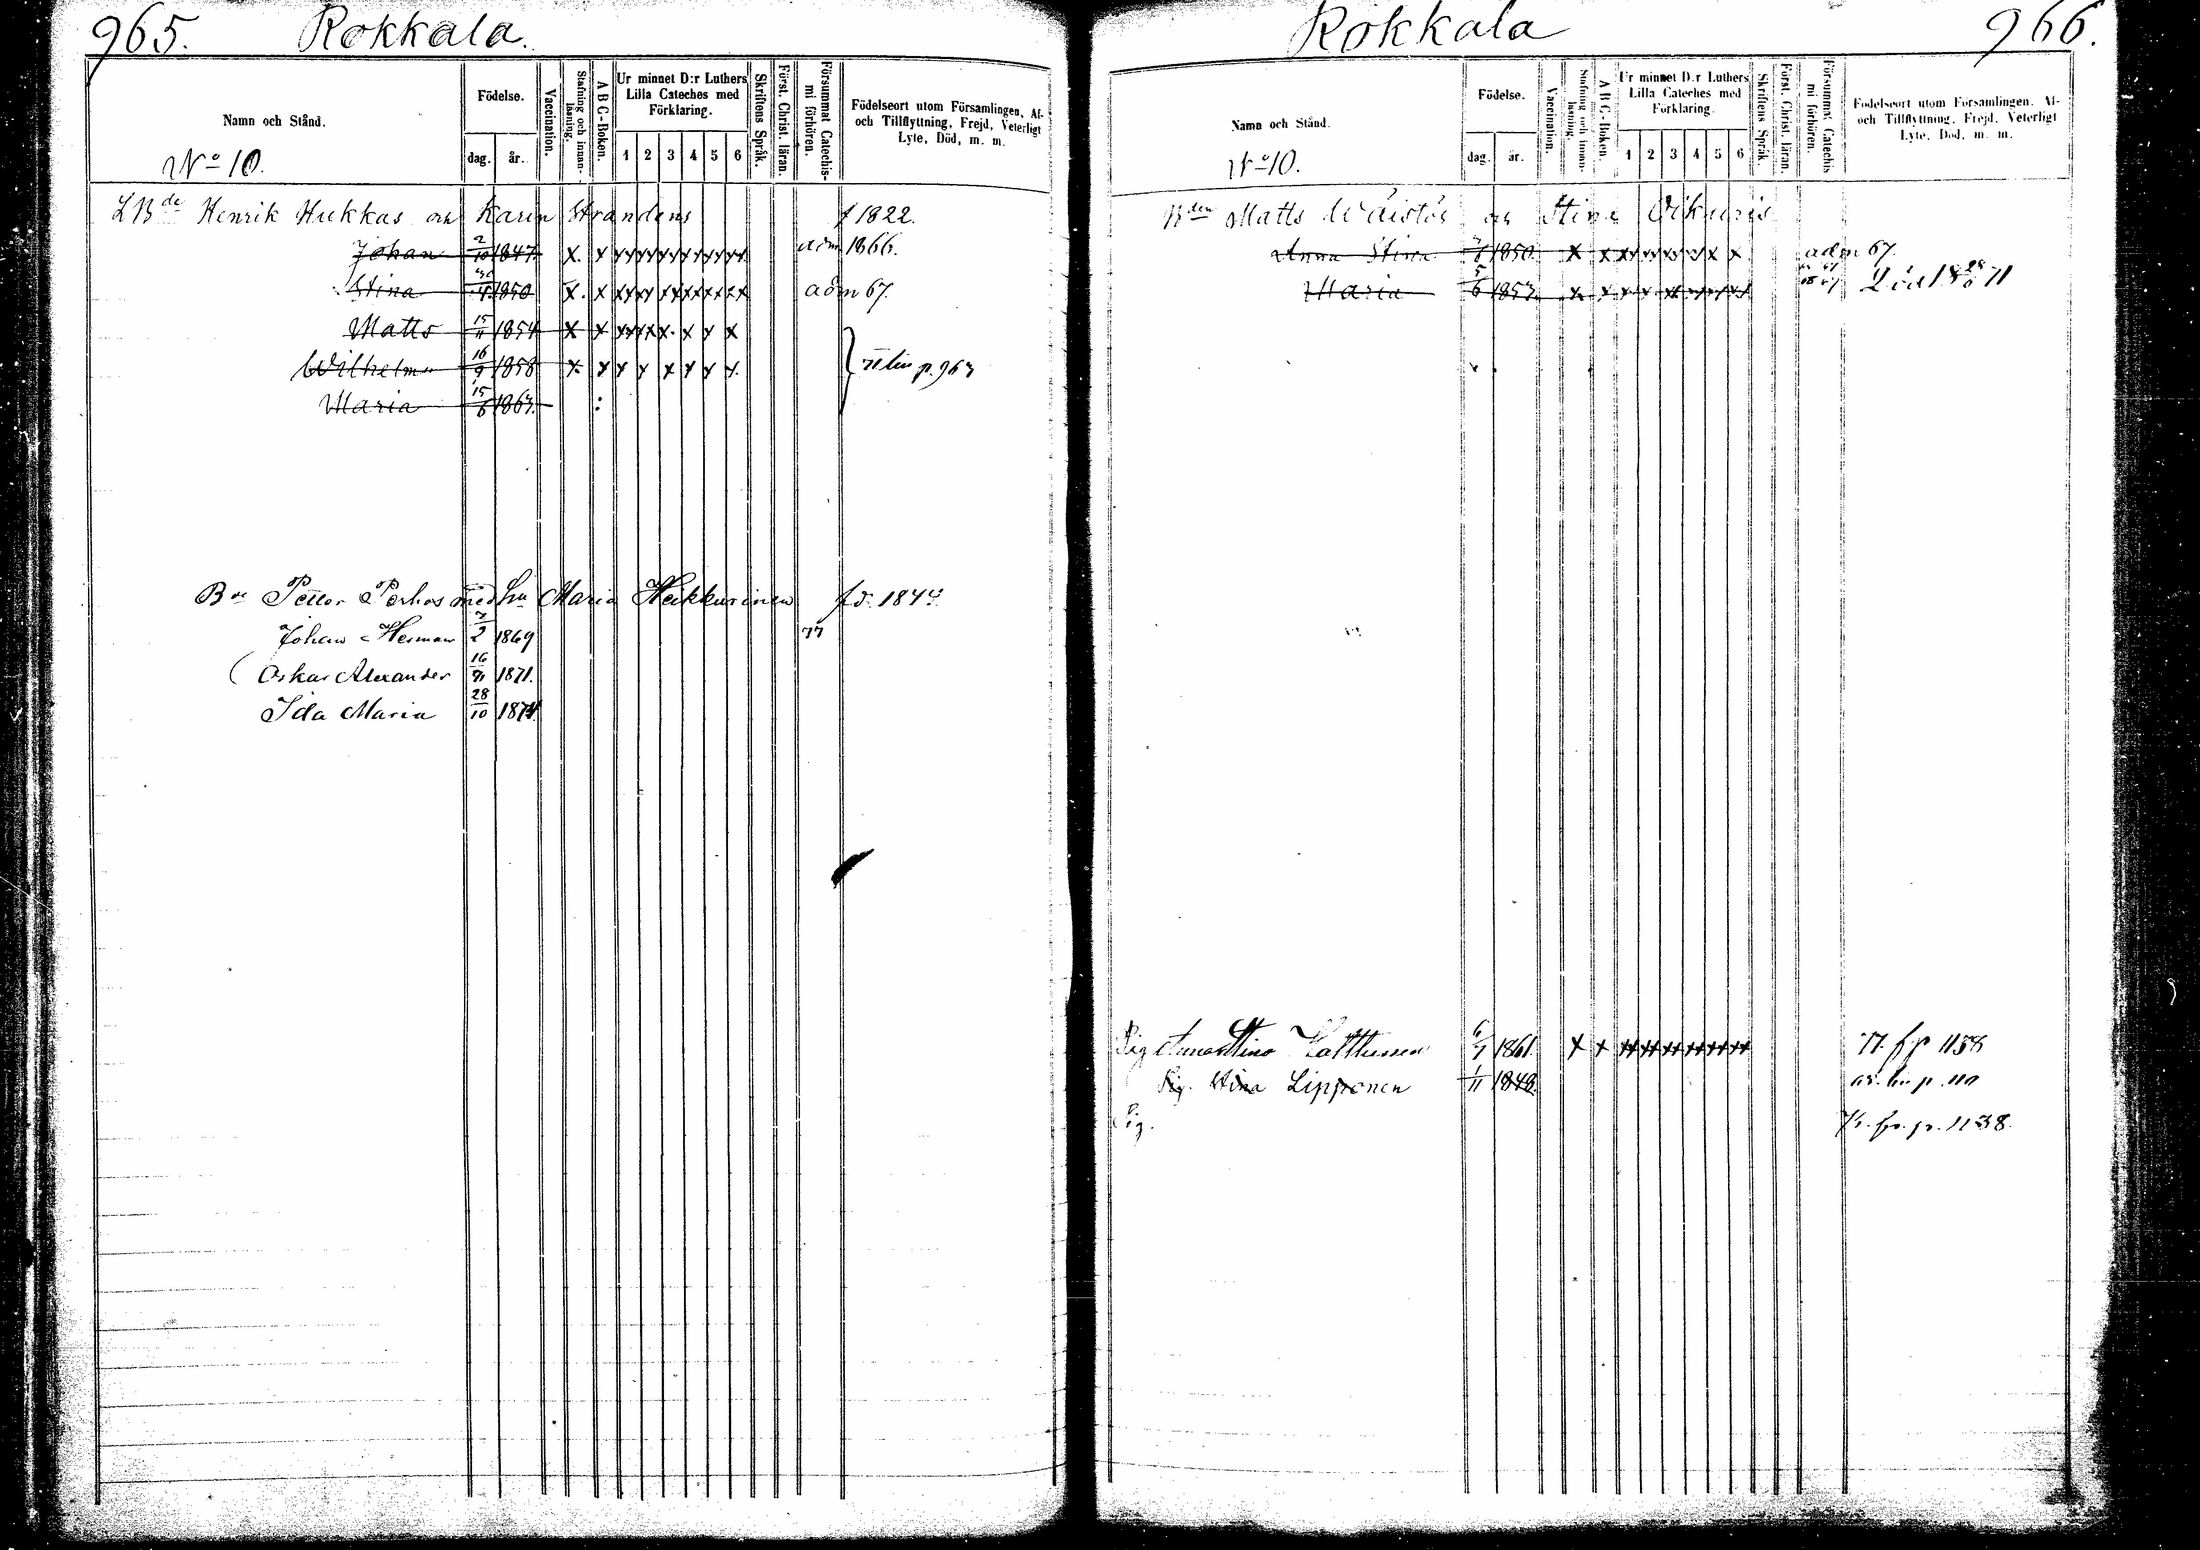 965. Rokkala.
Namn och Stånd.
No 10.
Födelse.
dag. år.
Vaccination.
Stafning och innan-läsning.
A B C-Boken.
Ur minnet D:r Luthers Lilla Cateches med Förklaring.
1 2 3 4 5 6
Skriftens Språk.
Först. Christ. läran.
Försummat Catechis-mi förhören.
Födelseort utom Församlingen, Af- och Tillflyttning, Frejd, Veterligt Lyte, Död, m. m.
LBde Henrik Hukkas och Karin Strandens f 1822.
Johan 2/10 1847 adm 1866.
Stina 1850 adm 67.
Matts 15/11 1854
Wilhelm 16/9 1858 p. 963
Maria 15/6 1863
Petter Porkas med Maria Heikkurinen fd. 1844
Johan Herman 7/2 1869 77
Oskar Alexander 16/9 1871.
Ida Maria 28/10 1874
Rokkala 966.
Namn och Stånd.
No 10.
Födelse.
dag. år.
Vaccination.
Stafning och innan-läsning.
A B C-Boken.
Ur minnet D:r Luthers Lilla Cateches med Förklaring.
1 2 3 4 5 6
Skriftens Språk.
Först. Christ. läran.
Försummat Catechis mi förhören.
Födelseort utom Församlingen, Af- och Tillflyttning, Frejd, Veterligt Lyte, Död, m. m.
Matts och Stina
Anna Stina 1850 adm 67.
Maria 5/6 1853 Död 18 71
Pig Anna Stina 6/7 1861. 77. f p 1158
Pig. Stina Lipponen 1/11 1848. p. 110
Pig. fr. p. 1138.